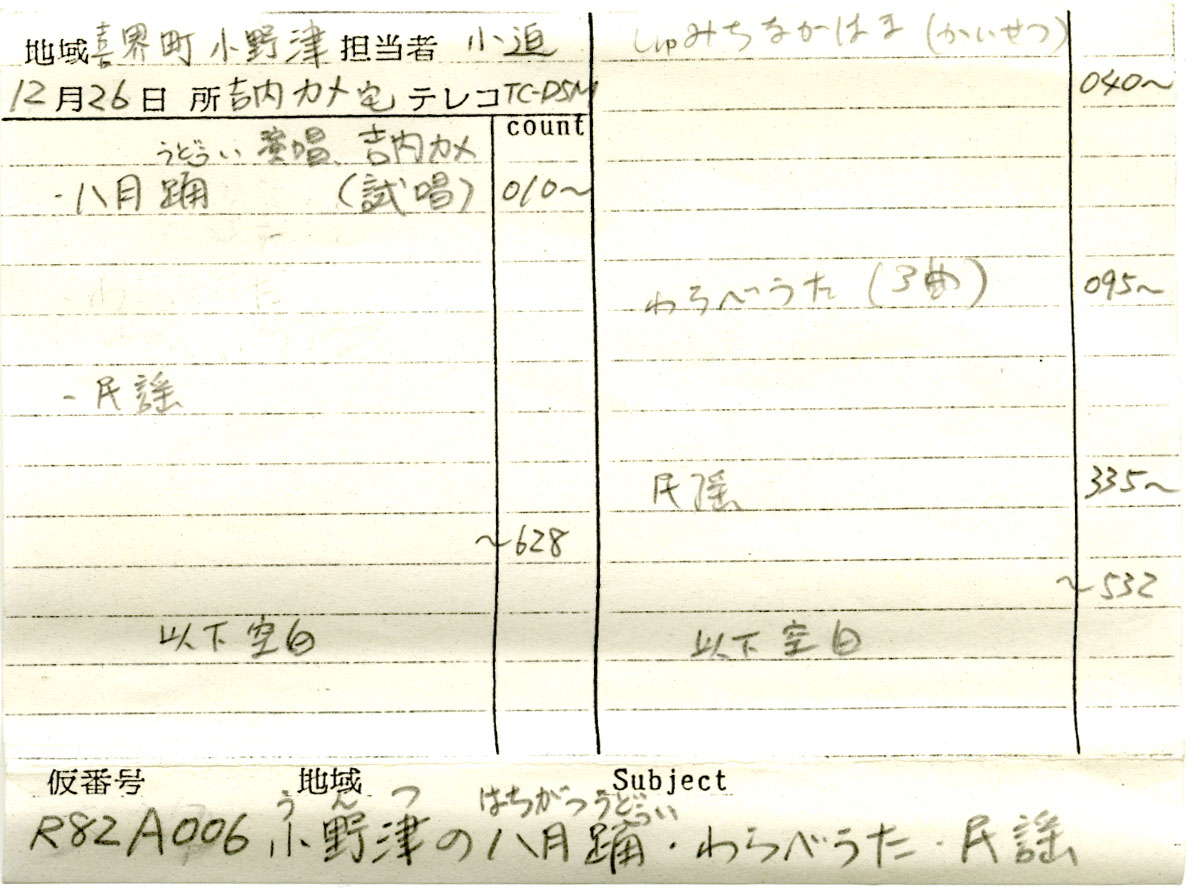 地域喜界町 小野津 担当者 小迫
12月26日 所 吉内カメ宅 テレコTC-D5M
count
うどぅい 演唱、吉内カメ
・八月踊 (試唱) 010~
- 民謡
~628
以下空白
しゅみちなかはま (かいせつ)
040~
わらべうた (3曲) 095~
民謡 335~
~532
以下空白
仮番号 地域 Subject
うんつ はちがつうどぅい
R82A006 小野津の八月踊・わらべうた・民謡